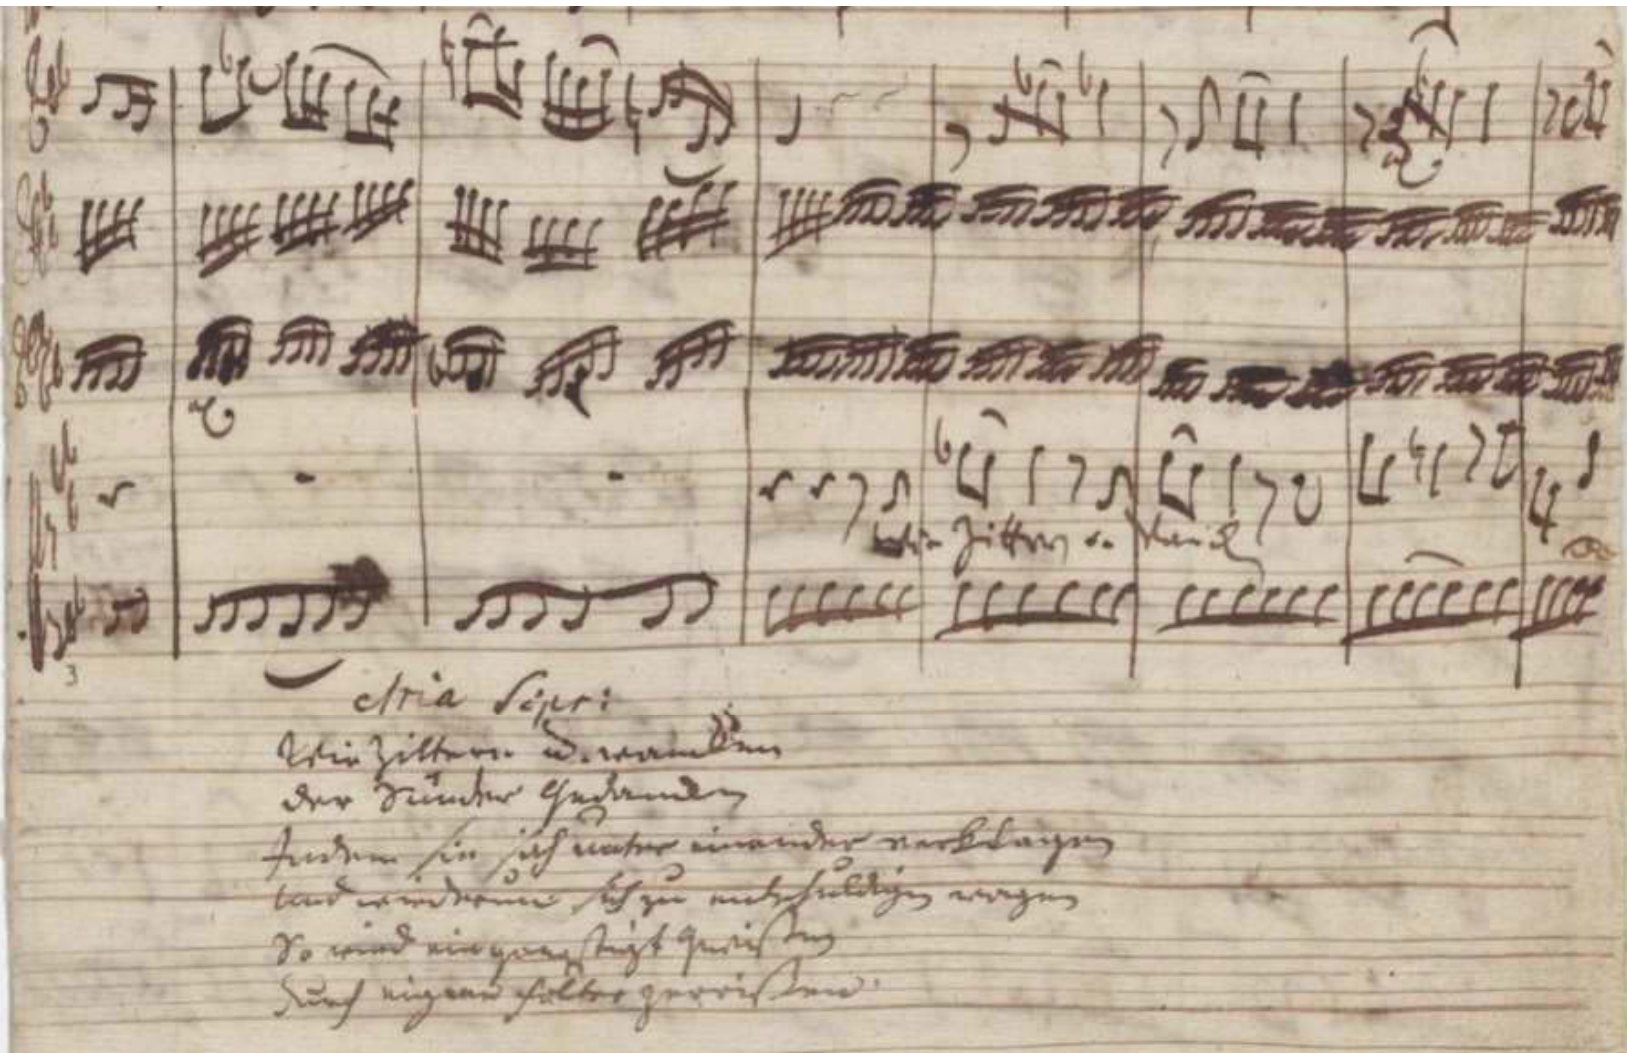 Wir zittern u. wanck
3
Aria Sopr:
Wie zittern u. wancken
der Sünder Gedancken
Indem sie sich unter einander verklagen
und wiederum sich zu entschuldigen wagen
So wird ein geängstigt Gewißen
durch eigene Folter zerrißen.